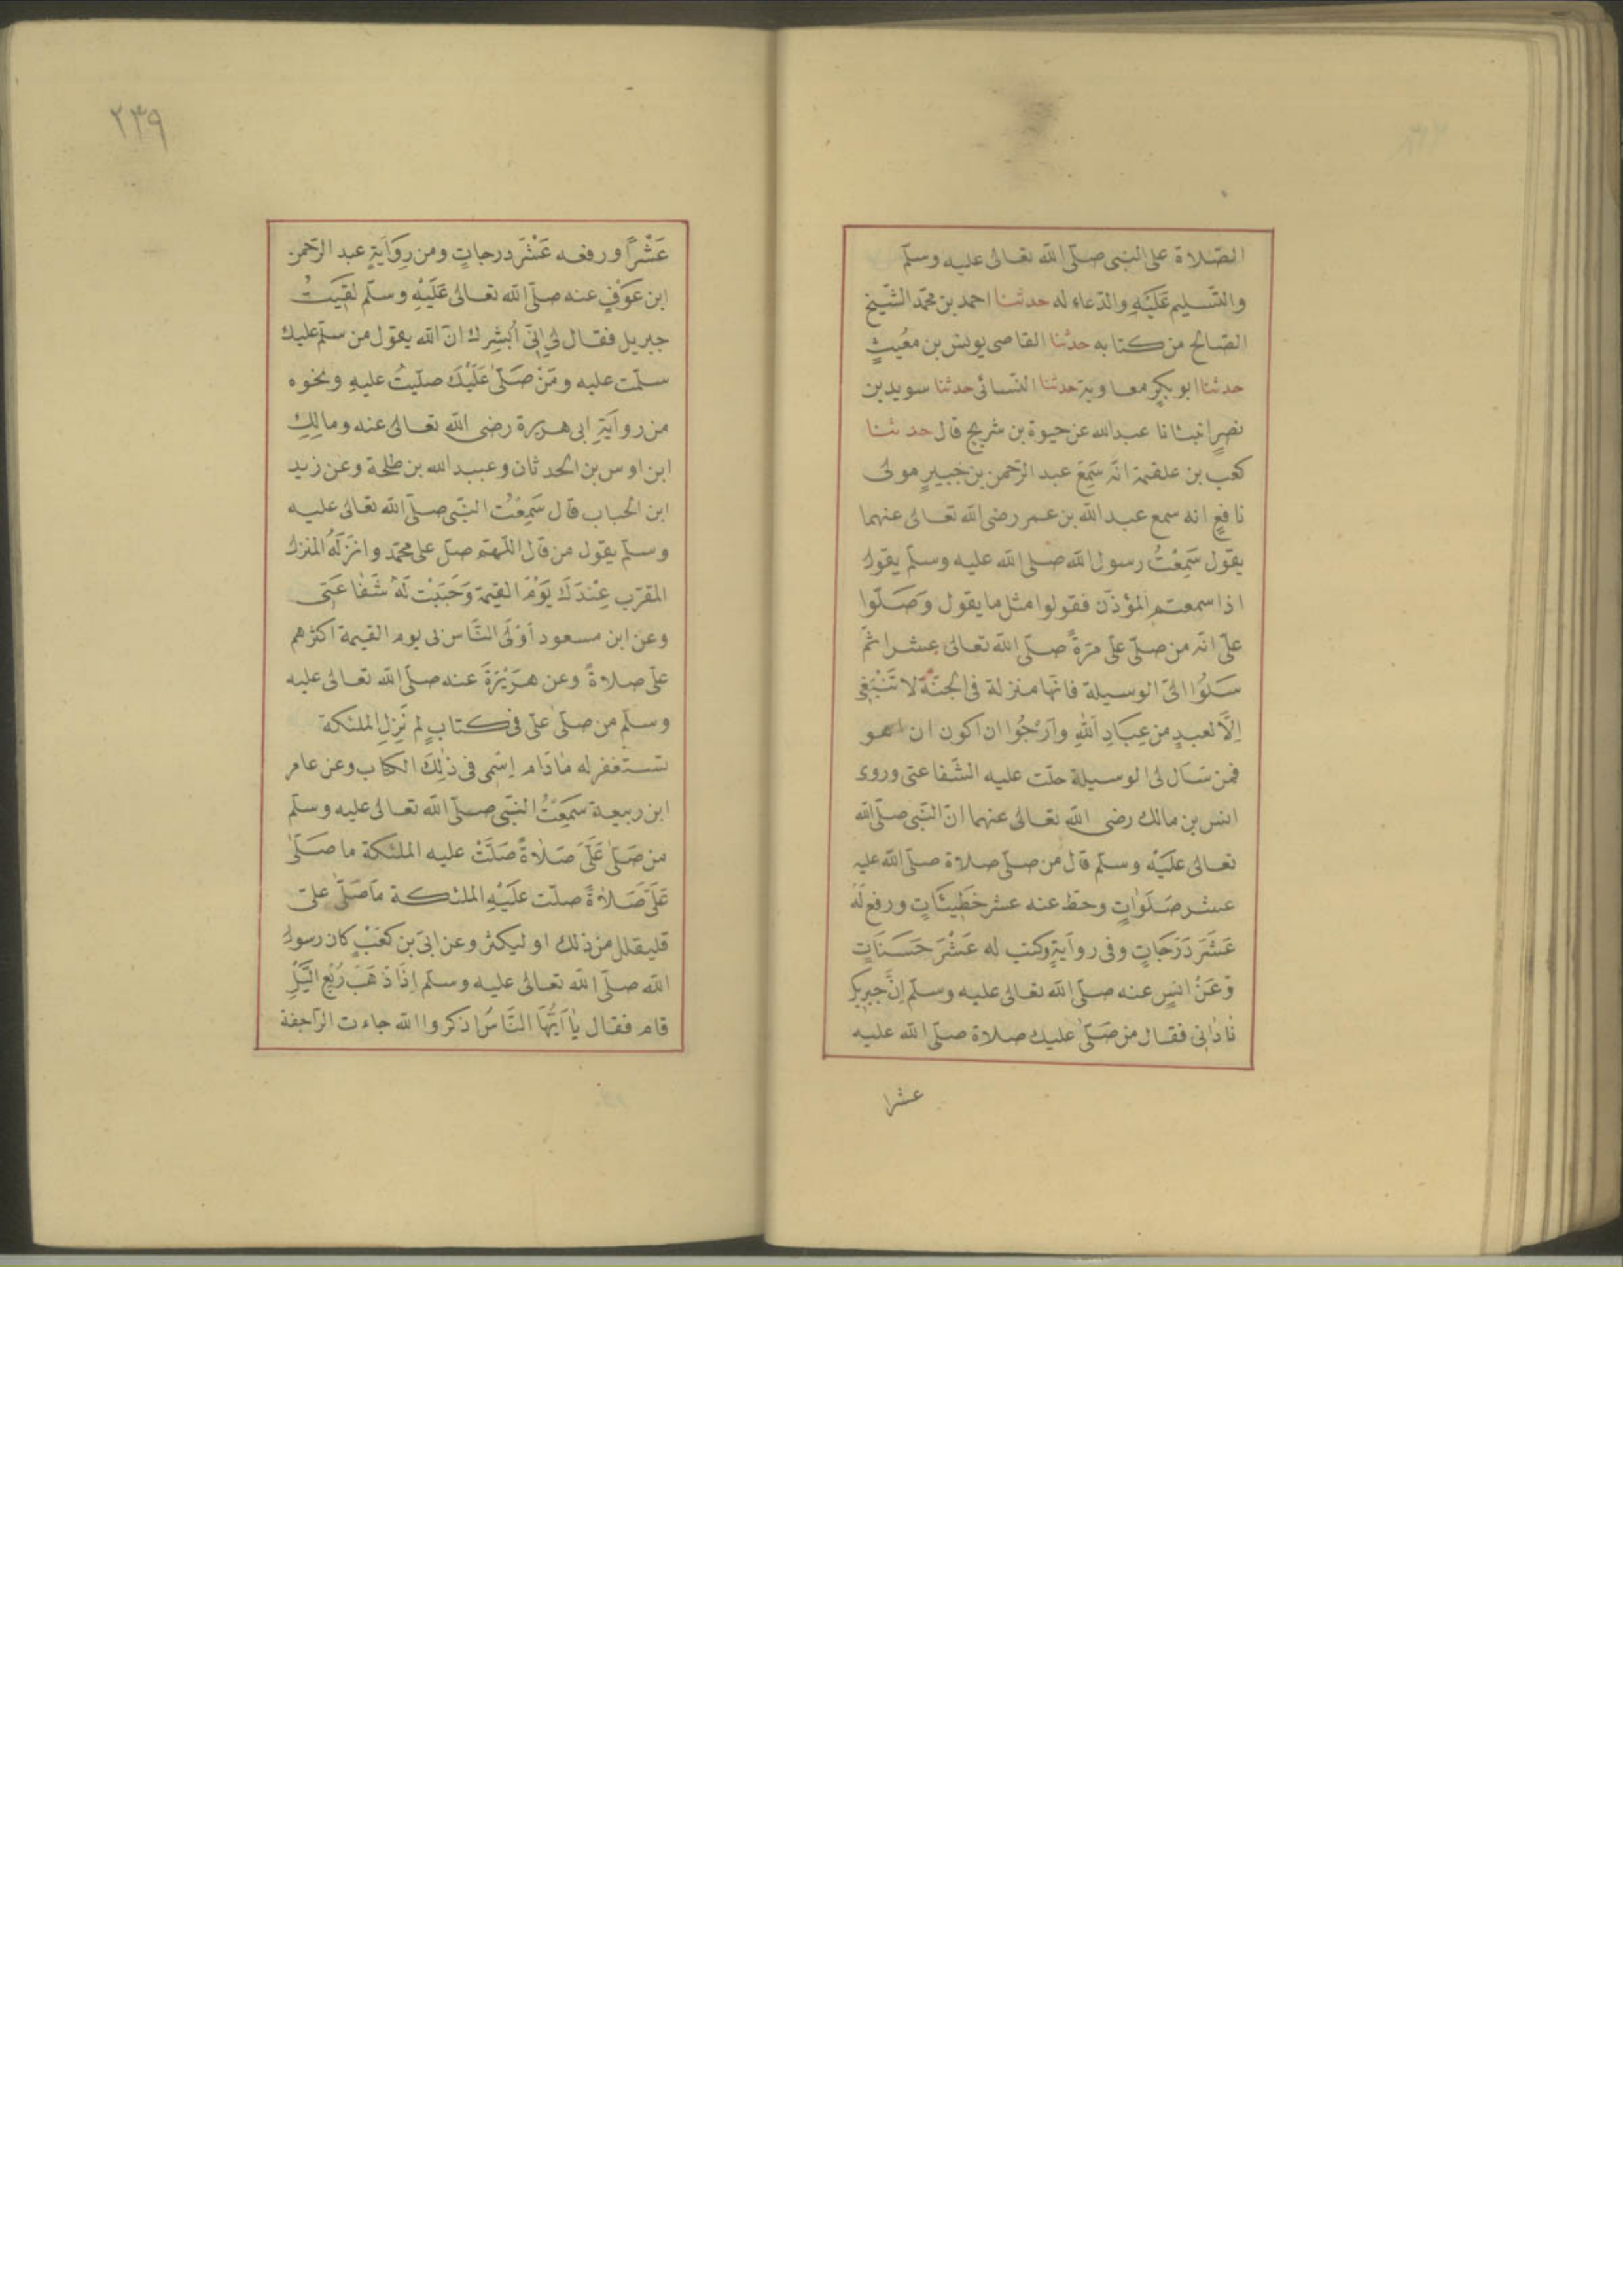 الصّلاة على النبى صلّى الله تعالى عليه وسلّم
والتّسليم عَلَيْهِ والدّعاء له حدثنا احمد بن محمّد الشّيخ
الصّالح من كتابه حدّثنا القاصى يونس بن معُيثٍ
حدثنا ابو بكرٍ معاوية حدثنا النّسائى حدثنا سويد بن
نصرٍ انبئانا عبدالله عن حيوة بن شريح قال حدثنا
كعب بن علقمة انّه سَمِعَ عبد الرّحمن بن جُبيرٍ مولى
نافعٍ انه سمع عبد الله بن عمر رضى الله تعالى عنهما
يقول سَمِعْتُ رسول الله صلى الله عليه وسلّم يقول
اذا سمعتم المؤذّن فقولوا مثل ما يقول وَصَلّوا
علىّ انّه من صلّى علىّ مرّةً صلّى الله تعالى عشرا ثمّ
سَلُوا الىّ الوسيلة فانّها منزلة فى الجنّة لا تَنْبَغِى
اِلاَّ لعبدٍ من عِبَادِ اللهِ وَاَرْجُوا ان اكون انا هو
فمن سَاَل لى الوسيلة حلّت عليه الشّفاعتى وروى
انس بن مالك رضى الله تعالى عنهما انّ النّبى صلّى الله
تعالى عَلَيْه وسلّم قال من صلّى صلاة صلّى الله عليه
عشر صَلَوَاتٍ وحطّ عنه عشر خَطِيئَاتٍ ورفع لَهُ
عَشَرَ دَرَجَاتٍ وفى رواَيَةٍ وكتب له عَشْرَ حَسَنَاتٍ
وَعَنْ انسٍ عنه صلّى الله تعالى عليه وسلّم اِنَّ جبريل
نَادَانى فقال من صَلّىٰ عليك صلاة صلّى الله عليه
عشرا
٢٣٩
عَشْراً ورفعه عَشَرَ درجاتٍ ومن رِوَايَةٍ عبد الرّحمن
ابن عَوْفٍ عنه صلّى الله تعالى عَلَيْهِ وسلّم لَقِيَتُ
جبريل فقال لى اِنِّى اُبشِرك انّ الله يقول من سلّم عليك
سلّمت عليه ومَنْ صَلّىٰ عَلَيْكَ صلّيتُ عليهِ ونحوه
من روايَةِ ابى هريرة رضى الله تعالى عنه ومالِكِ
ابن اوس بن الحدثان وعبيد الله بن طلحة وعن زيد
ابن الحباب قال سَمِعْتُ النبّى صلّى الله تعالى عليه
وسلّم يقول من قال اللّهمّ صلّ على محمّد وانزَلَهُ المنزل
المقرّب عِنْدَكَ يَوْمَ القيمة وَجَبَتْ لَهُ شَفَاعَتِى
وعن ابن مسعود اَوْلَى النَّاس لى يوم القيمة اكثرهم
علىّ صلاةً وعن هرَيْرَةَ عنه صلّى الله تعالى عليه
وسلّم من صلّىٰ علىّ فى كتابٍ لم تَزِلِ الملئكة
تستغفر له مَادَام اِسْمى فى ذٰلِكَ الكتاب وعن عامر
ابن ربيعة سَمِعْتُ النبّى صلّى الله تعالى عليه وسلّم
من صَلّىٰ عَلَىَّ صَلاَةً صَلَّتْ عليه الملئكة ما صَلّىٰ
عَلَىَّ صَلاَةً صلّت عَلَيْهِ الملئكة مَا صَلّىٰ علىّ
فليقلل من ذلك او ليكثر وعن ابىّ بن كَعْبٍ كان رسول
الله صلّى الله تعالى عليه وسلّم اِذَا ذَهَبَ رُبُعِ الَّيْلِ
قام فقال يٰا اَيّهَا النّاَسُ اذكروا الله جاءت الرّاجفة